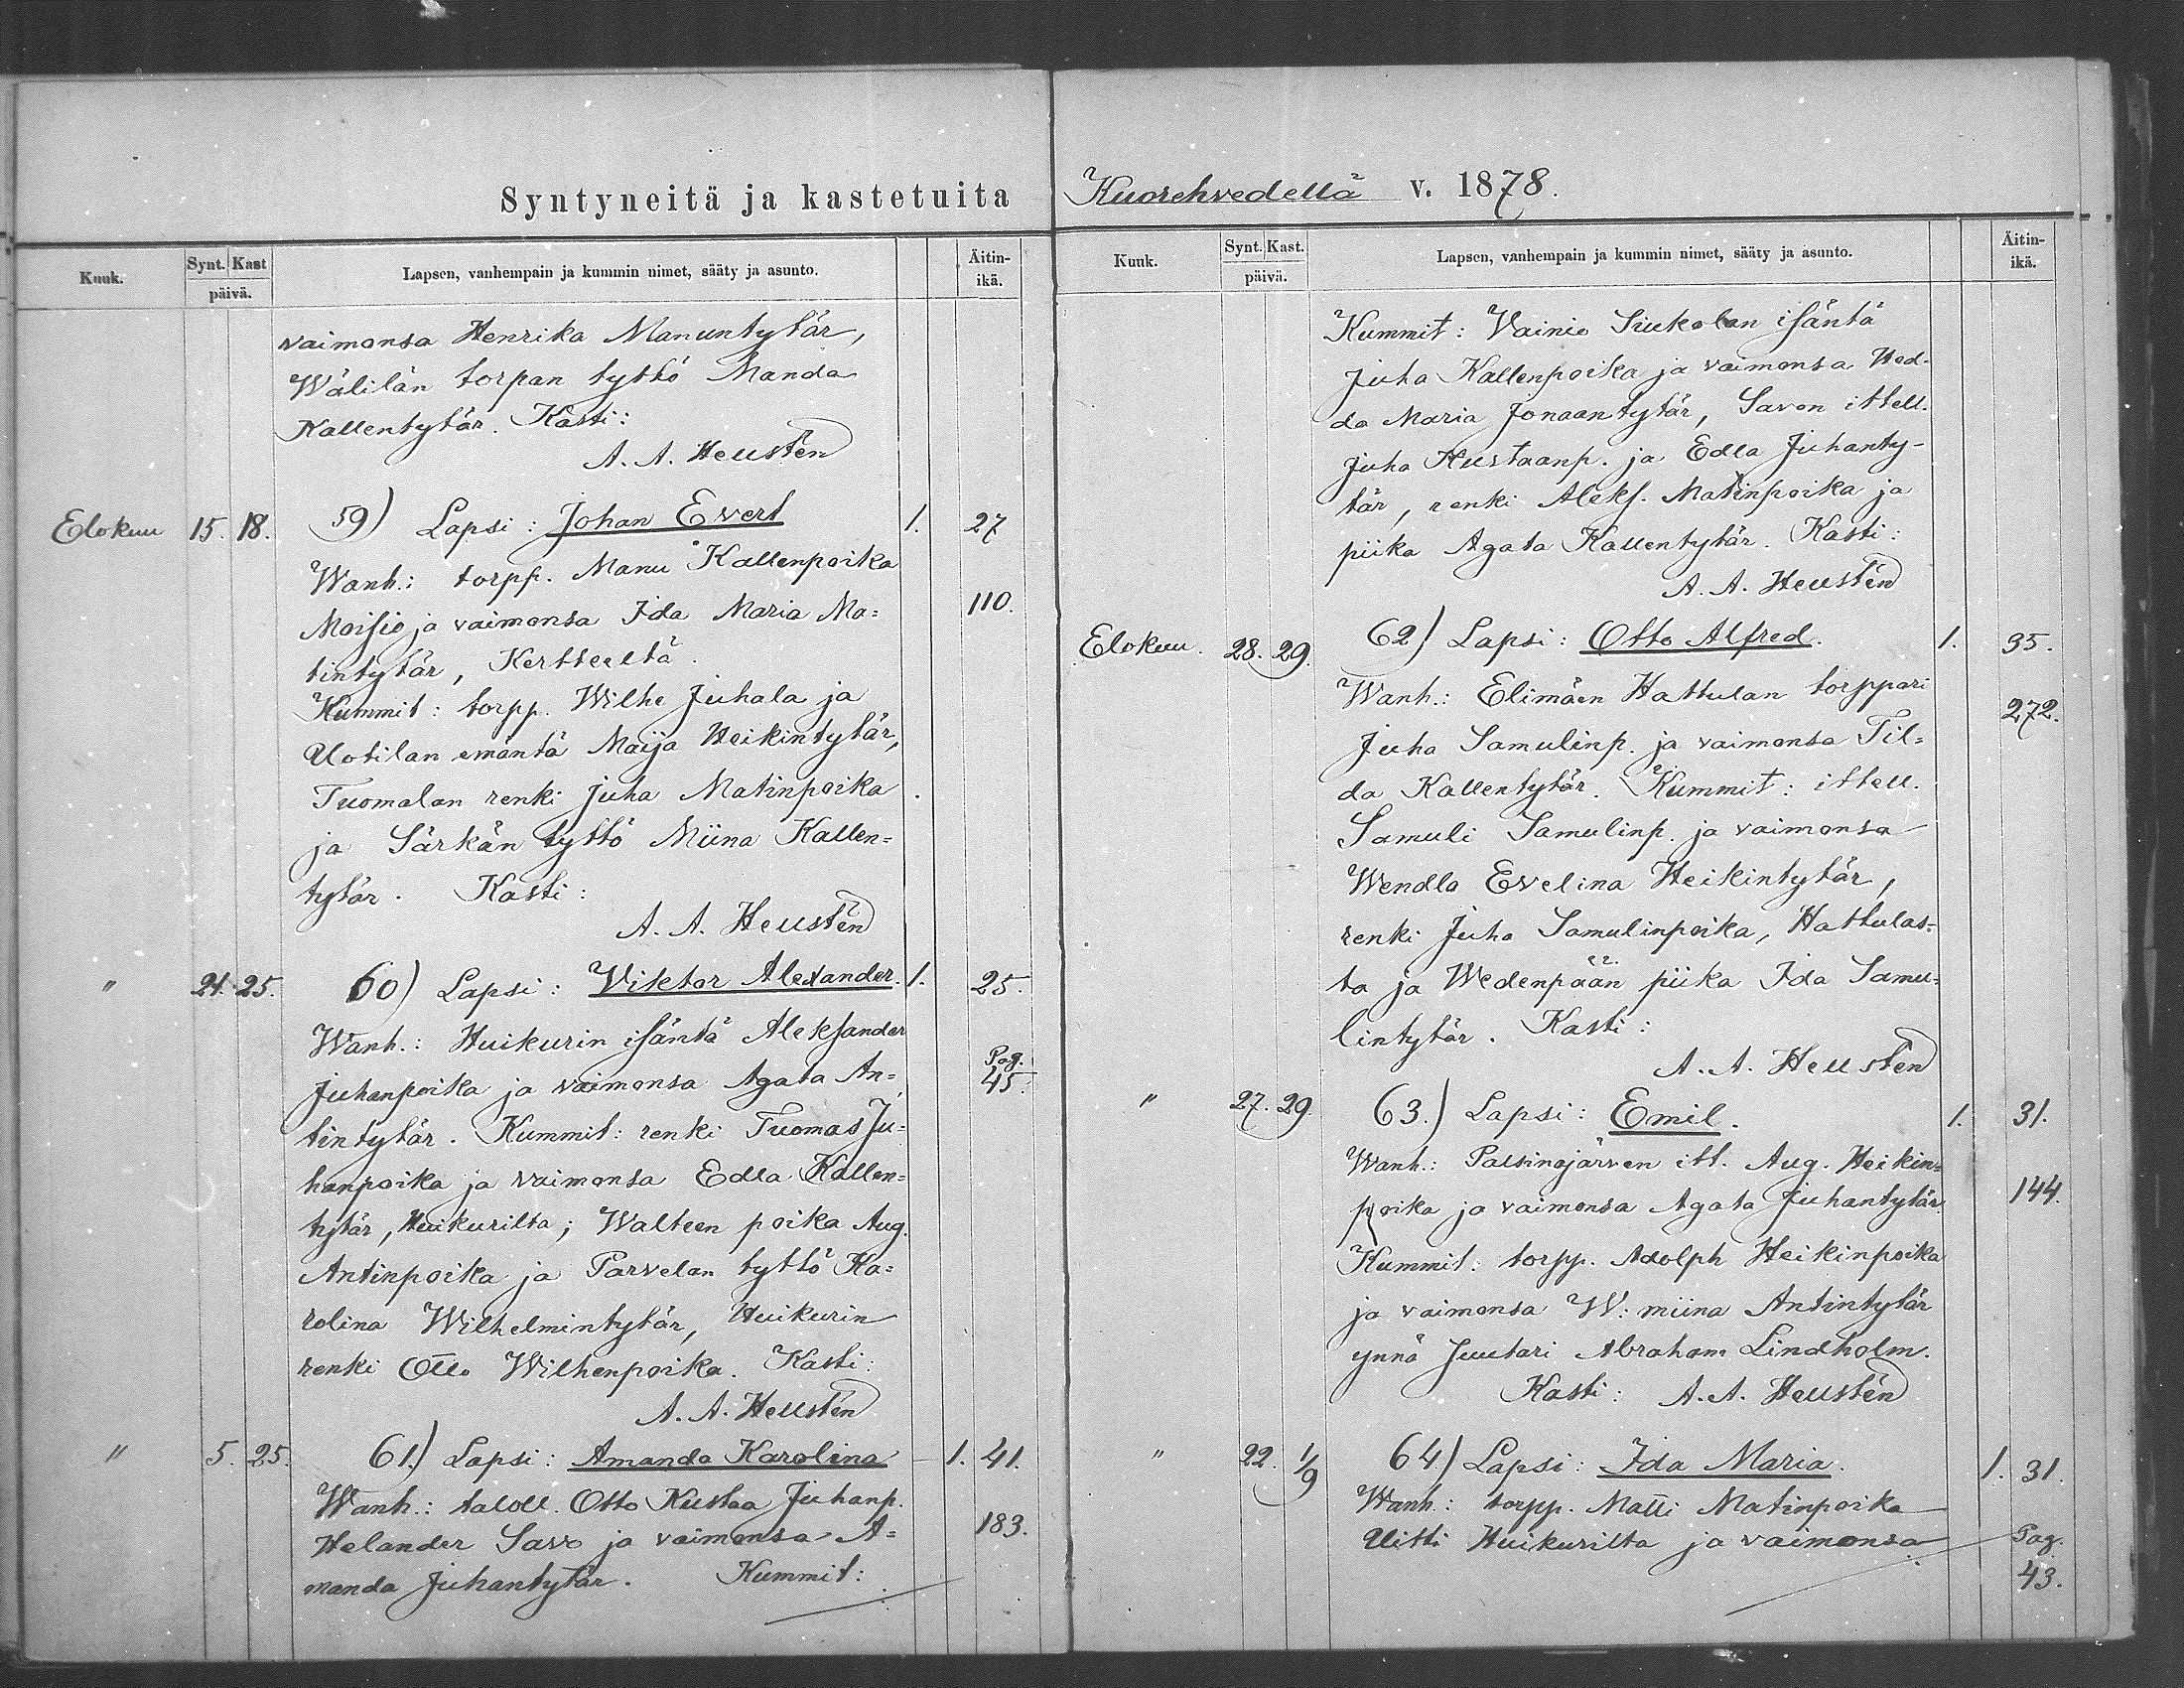 Syntyneitä ja kastetuita Kuorehvedellä v. 1878.
Kuuk. Synt. Kast päivä. Lapsen, vanhempain ja kummin nimet, sääty ja asunto. Äitin-ikä.
vaimonsa Henrika Manuntytär,
Wälilän torpan tyttö Manda
Kallentytär. Kasti:
A. A. Hellstén
Elokuu 15. 18. 59) Lapsi: Johan Evert 1. 27
Wanh.: torpp. Manu Kallenpoika
Moisio ja vaimonsa Ida Maria Ma= 110.
tintytär, Kertteeltä.
Kummit: torpp. Wilhe Juhala ja
Uotilan emäntä Maija Heikintytär,
Tuomalan renki Juha Matinpoika
ja Särkän tyttö Miina Kallen=
tytär. Kasti:
A. A. Hellstén
" 21. 25. 60) Lapsi: Viktor Alexander. 1. 25.
Wanh.: Huikurin isäntä Aleksander
Juhanpoika ja vaimonsa Agata An= Pag. 45.
tintytär. Kummit: renki Tuomas Ju=
hanpoika ja vaimonsa Edla Kallen=
tytär, Huikurilta; Walteen poika Aug.
Antinpoika ja Parvelan tyttö Ka=
rolina Wilhelmintytär, Huikurin
renki Otto Wilhenpoika. Kasti:
A. A. Hellstén
" 5. 25. 61.) Lapsi: Amanda Karolina 1. 41.
Wanh.: taloll. Otto Kustaa Juhanp.
Helander Savo ja vaimonsa A= 183.
manda Juhantytär. Kummit:
Kuuk. Synt. Kast. päivä. Lapsen, vanhempain ja kummin nimet, sääty ja asunto. Äitin-ikä.
Kummit: Vainio Siukolan isäntä
Juha Kallenpoika ja vaimonsa Hed-
da Maria Jonaantytär, Savon ittell.
Juha Kustaanp. ja Edla Juhanty-
tär, renki Aleks. Matinpoika ja
piika Agata Kallentytär. Kasti:
A. A. Hellstén
Elokuu. 28. 29. 62) Lapsi: Otto Alfred. 1. 35.
Wanh.: Elimäen Hattulan torppari
Juha Samulinp. ja vaimonsa Til= 272.
da Kallentytär. Kummit: ittell.
Samuli Samulinp. ja vaimonsa
Wendla Evelina Heikintytär,
renki Juha Samulinpoika, Hattulas=
ta ja Wedenpään piika Ida Samu=
lintytär. Kasti:
A. A. Hellstén
" 27. 29. 63.) Lapsi: Emil. 1. 31.
Wanh.: Palsinajärven itt. Aug. Heikin=
poika ja vaimonsa Agata Juhantytär. 144.
Kummit: torpp. Adolph Heikinpoika
ja vaimonsa W:miina Antintytär
ynnä Juutari Abraham Lindholm.
Kasti: A. A. Hellstén
" 22. 1/9 64) Lapsi: Ida Maria. 1. 31.
Wanh.: torpp. Matti Matinpoika
Uitti Huikurilta ja vaimonsa Pag.
43.